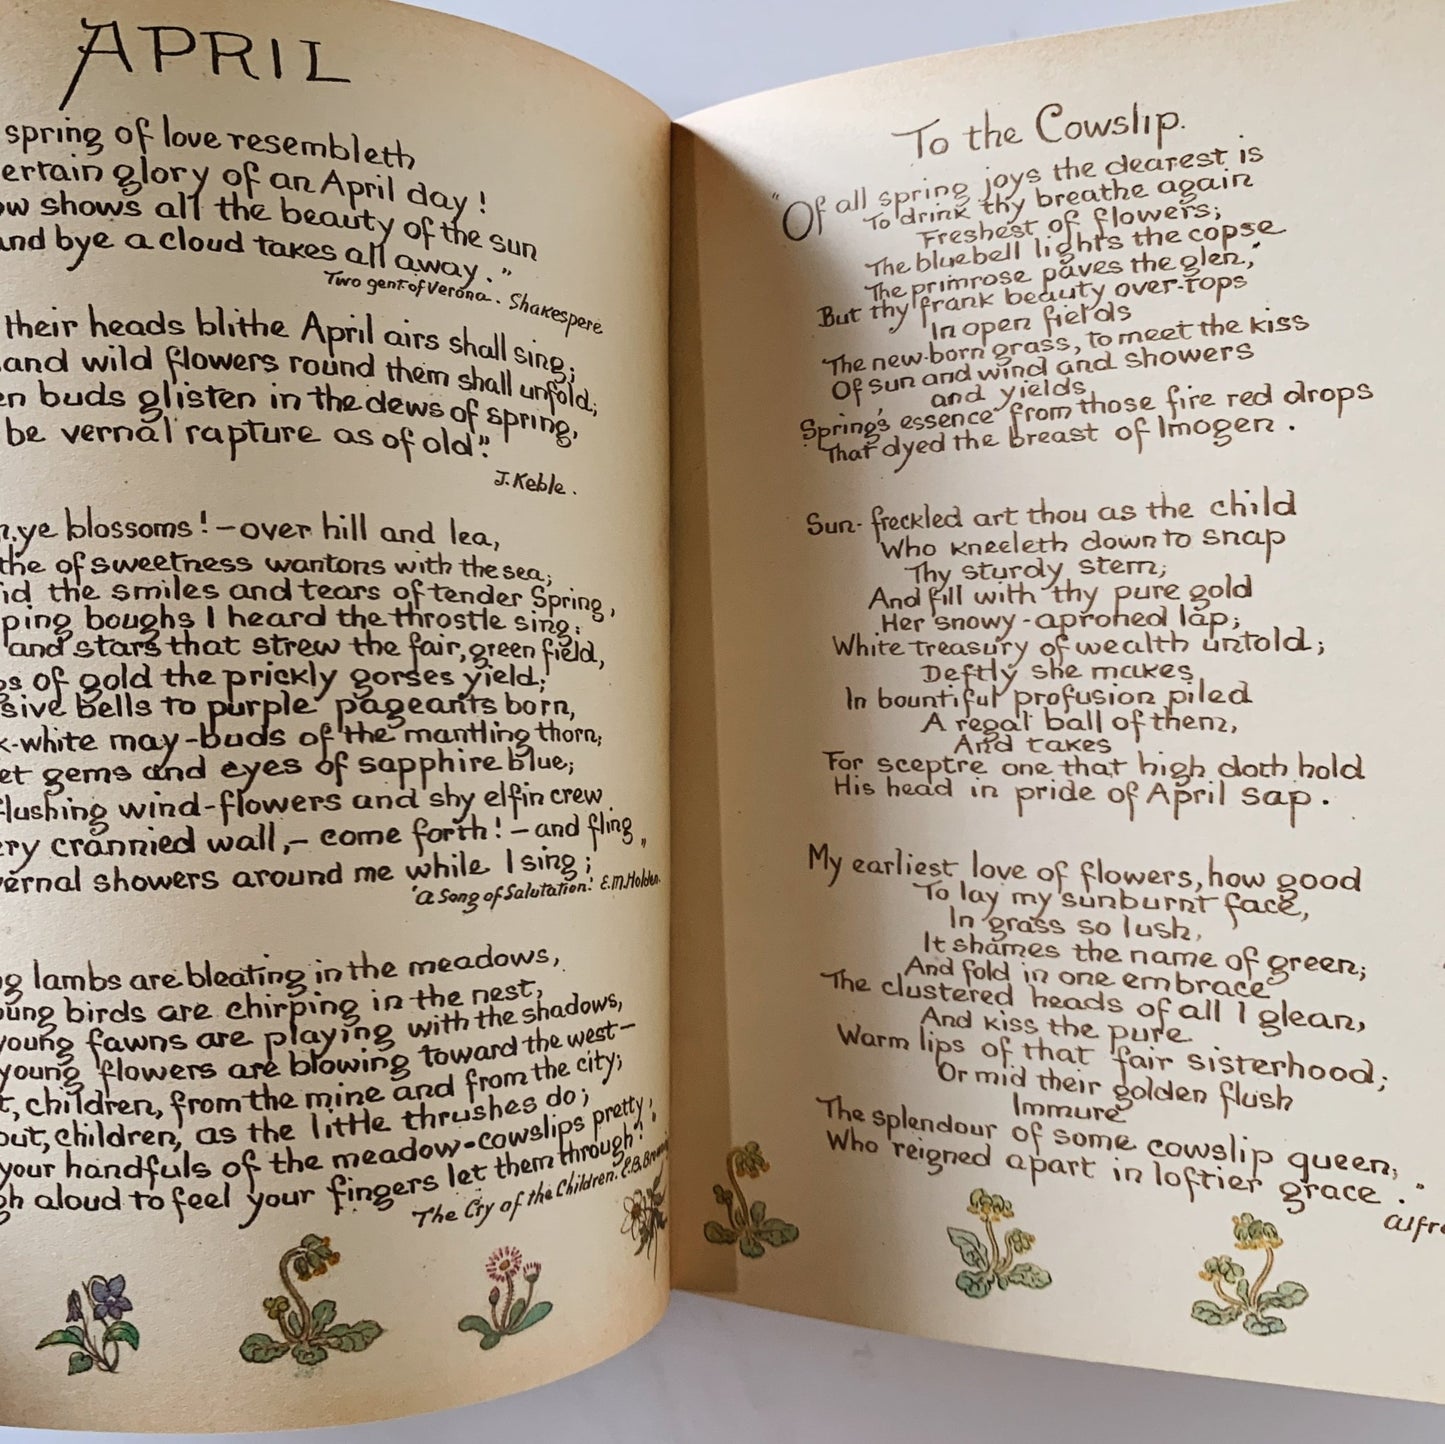 APRIL
spring of love resembleth
ertain glory of an April day!
ow shows all the beauty of the sun
and bye a cloud takes all away."
Two gent. of Verona. Shakespere
their heads blithe April airs shall sing;
and wild flowers round them shall unfold;
en buds glisten in the dews of spring,
be vernal rapture as of old".
J. Keble.
n, ye blossoms! - over hill and lea,
the of sweetness wantons with the sea;
id the smiles and tears of tender Spring,
ping boughs I heard the throstle sing;
and stars that strew the fair, green field,
gs of gold the prickly gorses yield;
sive bells to purple pageants born,
k-white may-buds of the mantling thorn;
et gems and eyes of sapphire blue;
flushing wind-flowers and shy elfin crew
ery crannied wall, - come forth! - and fling
vernal showers around me while I sing; "
'A Song of Salutation.' E.M. Holden.
ng lambs are bleating in the meadows,
oung birds are chirping in the nest,
young fawns are playing with the shadows,
young flowers are blowing toward the west —
t, children, from the mine and from the city;
out, children, as the little thrushes do;
your handfuls of the meadow-cowslips pretty,
gh aloud to feel your fingers let them through!"
The Cry of the Children. E.B. Browni
To the Cowslip.
"Of all spring joys the dearest is
To drink thy breathe again
Freshest of flowers;
The bluebell lights the copse
The primrose paves the glen,"
But thy frank beauty over-tops
In open fields
The new-born grass, to meet the kiss
Of sun and wind and showers
and yields,
Spring's essence from those fire red drops
That dyed the breast of Imogen.
Sun-freckled art thou as the child
Who kneeleth down to snap
Thy sturdy stem;
And fill with thy pure gold
Her snowy-aproned lap;
White treasury of wealth untold;
Deftly she makes
In bountiful profusion piled
A regal ball of them,
And takes
For sceptre one that high doth hold
His head in pride of April sap.
My earliest love of flowers, how good
To lay my sunburnt face,
In grass so lush,
It shames the name of green;
And fold in one embrace
The clustered heads of all I glean,
And kiss the pure
Warm lips of that fair sisterhood;
Or mid their golden flush
Immure
The splendour of some cowslip queen,
Who reigned apart in loftier grace."
Alfre